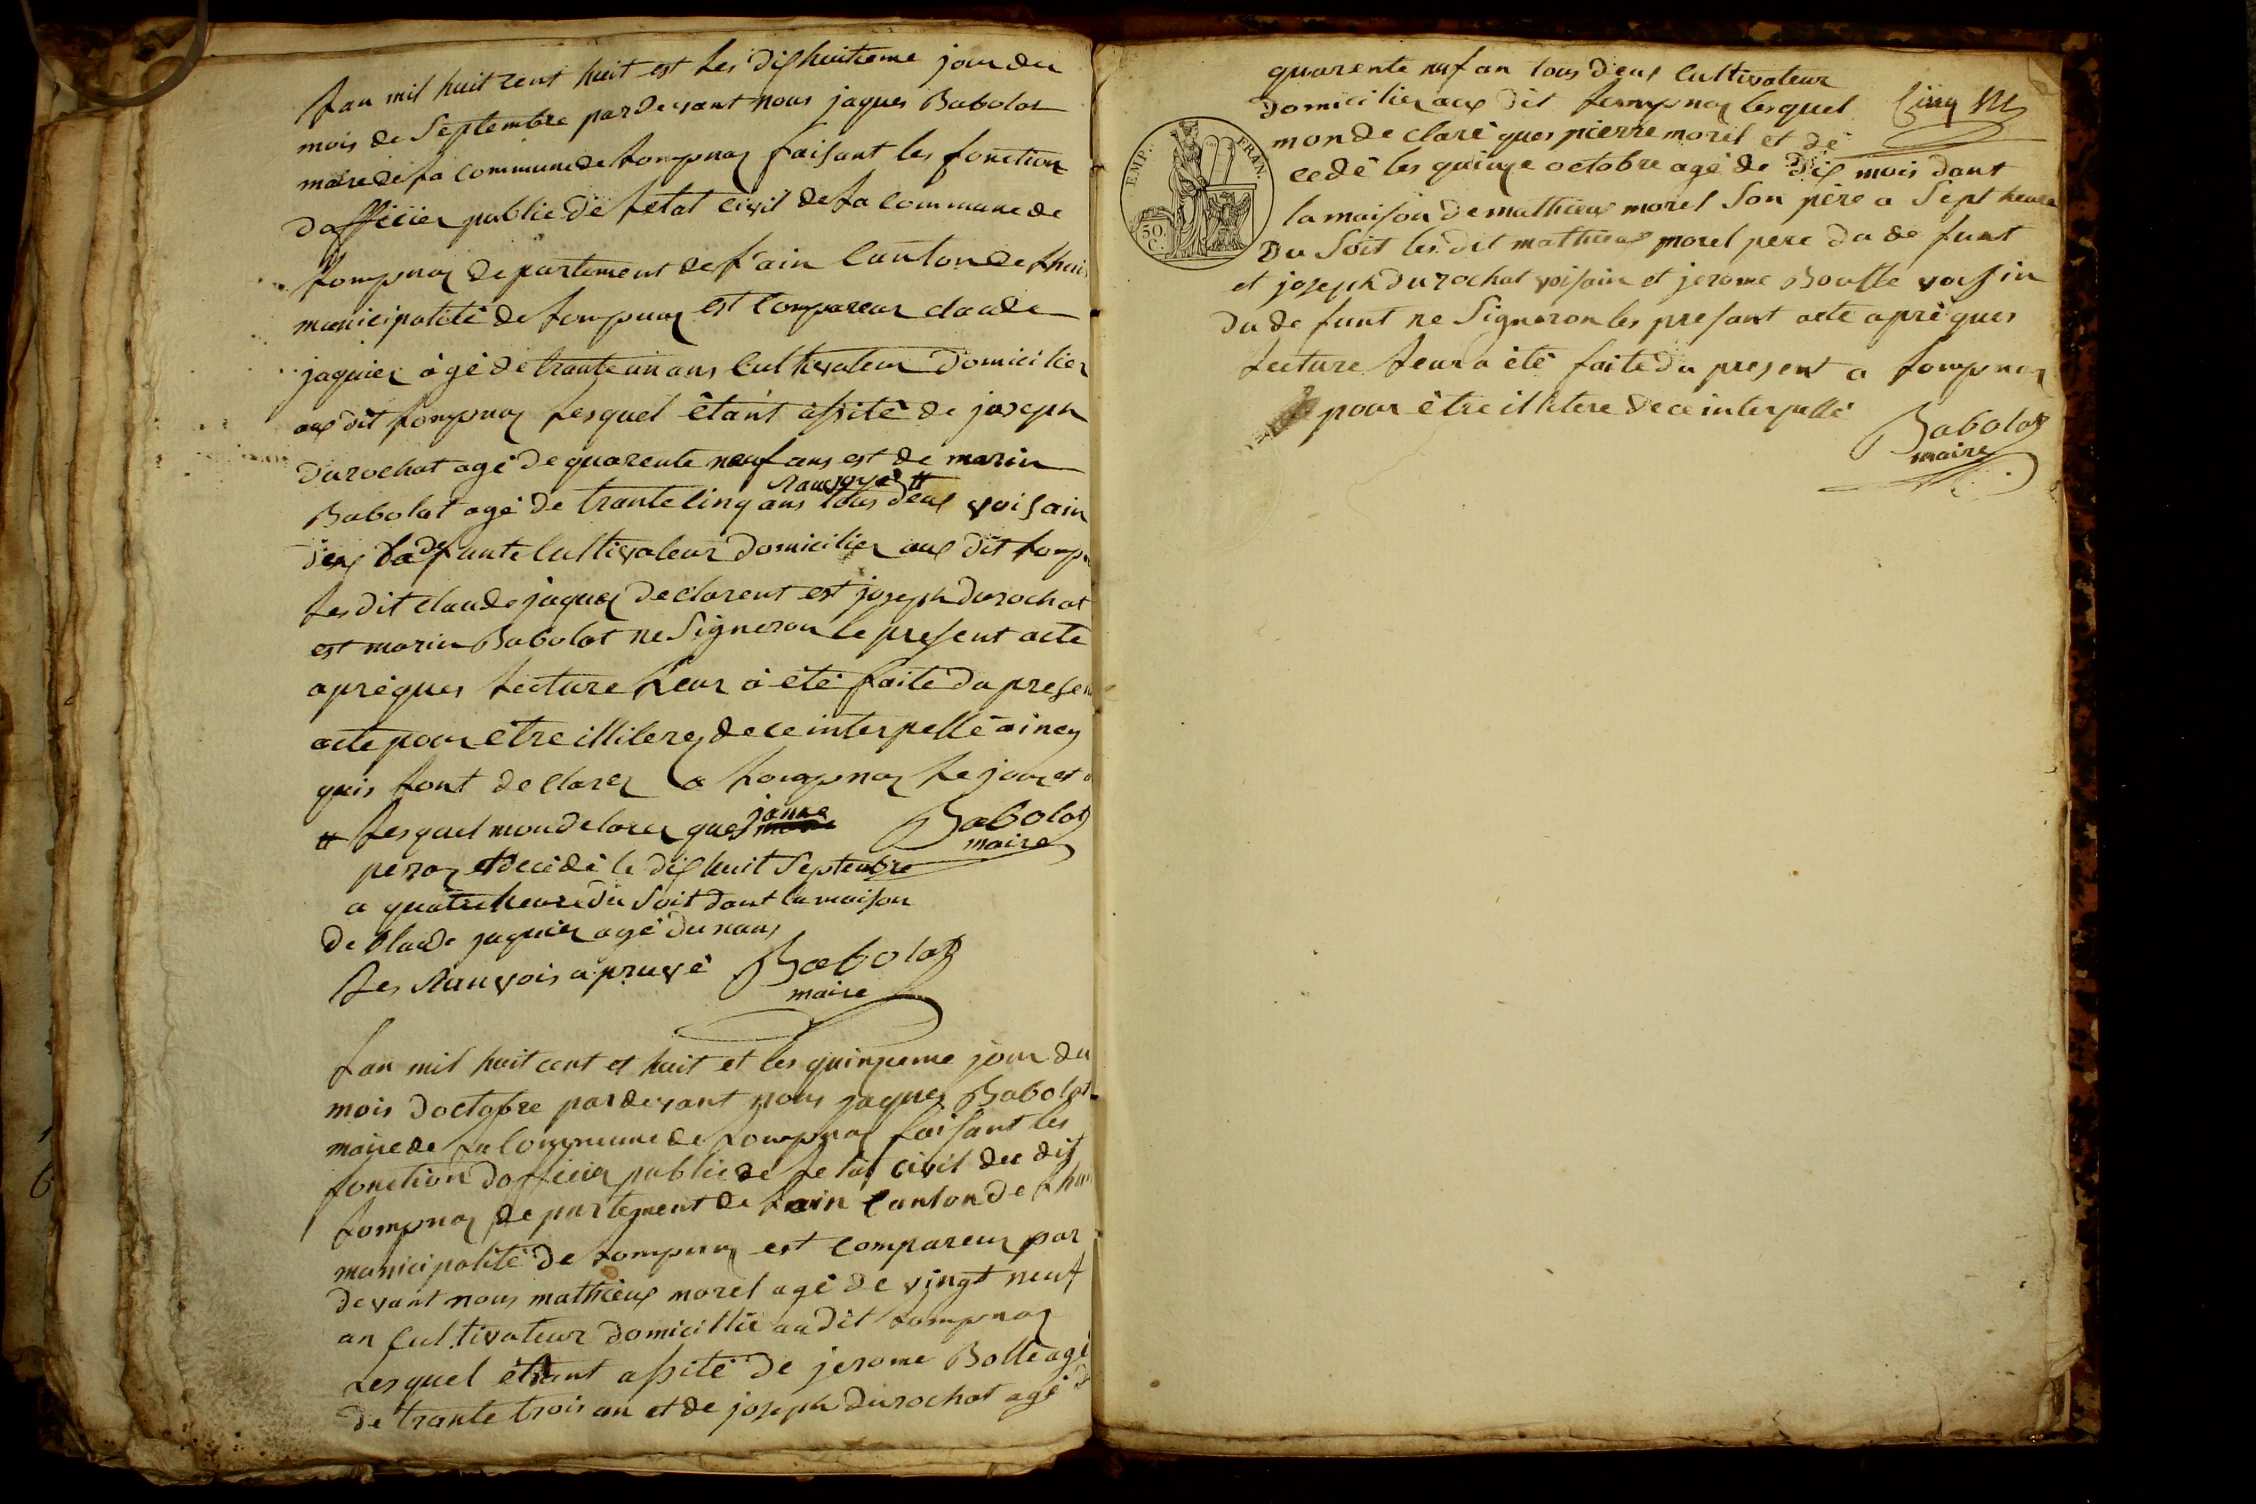 Lan mil huit cent huit est les dishuitieme jour du
mois de Septembre pardevant nous jaques Babolat
maire de la commune de Lompnas faisant les fonction
dofficier public de letat civil de la commune de
Lompnas departement de l'ain Canton de lhui
municipalité de Lompnas est compareur claude
jaquier âgé de trante un ans Cultivateur Domicilier
aux dit Lompnas Lesquel êtant assité de joseph
durochat agé de quarente neuf ans est de marin
Ranvoyé #
Babolat agé de trante cinq ans tous deux voisain
de
funte Cultivateur domicilier aux dit Lomp
Les dit claude jaquier declarent est joseph durochat
est marin Babolat ne Signeron le present acte
aprèques Lecture Leur à été faite du presen
acte pour être illiteres de ce interpellé aincy
quis Lont declarer a Lompnas Le jour et
janne
# Lesquel mon delarer ques Babolat
maire
peroz et decidé le dix huit Septembre
a quatre heure du Soit dant la maison
de Claude jaquier agé dunans
Les Ranvois apruvé Babolat
maire
Lan mil huit cent et huit et les quinzeme jour du
mois doctobre pardevant nous jaques Babolat
maire de La Commune de Lompnas faisant les
fonction dofficier public de Letat civil du dit
Lompnas departement de Lain Canton de lhui
municipalité de Lompnas est compareur par
devant nous mathieux morel agé de vingt neuf
an Cultivateur domicillié au dit Lompnas
Lesquel êtant assité de jerome Bolle agé
de trante trois an et de joseph durochat agé d
quarente nuf an tous deux Cultivateur
domicilier aux dit Lompnas lesquel
Cinq
mon declaré ques pierre morel et dé
cedé les quinze octobre agé de dix mois dant
la maison de mathieux morel Son père a Sept heure
EMP. FRAN.
50 C.
Du Soit les dit mathieux morel pere du de funt
et joseph durochat voisain et jerome Boulle voisin
du de funt ne Signeron les presant acte aprèques
Lecture Leur à été faite du present a Lompnas
pour être illitere de ce interpellé
Babolat
maire